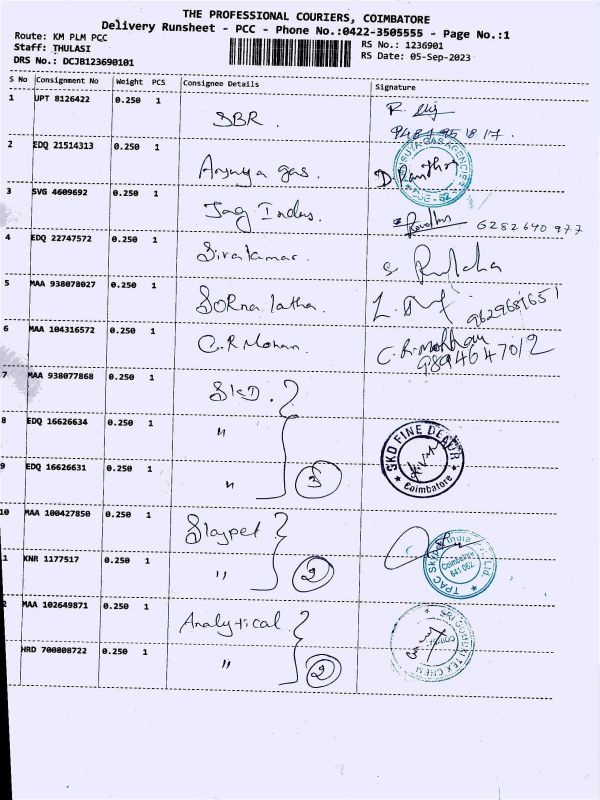 THE PROFESSIONAL COURIERS, COIMBATORE
Delivery Runsheet - PCC - Phone No.:0422-3505555 - Page No.:1
Route: KM PLM PCC
Staff: THULASI
DRS No.: DCJB123690101
RS No.: 1236901
RS Date: 05-Sep-2023
S No Consignment No Weight PCS Consignee Details Signature
1 UPT 8126422 0.250 1 SBR.
2 EDQ 21514313 0.250 1 gas.
3 SVG 4609692 0.250 1 Jag Indus. 6282640977
4 EDQ 22747572 0.250 1 Sivakumar. S
5 MAA 938078027 0.250 1 SORna latha. L. 9629681651
6 MAA 104316572 0.250 1 C.R Mohan. C.R. 9894647012
7 MAA 938077868 0.250 1 SKD.
8 EDQ 16626634 0.250 1 "
SKD FINE DEALR
Coimbatore
9 EDQ 16626631 0.250 1 " 3
10 MAA 100427850 0.250 1
India Pvt. Ltd.
Coimbatore
641 062
TPAC
1 KNR 1177517 0.250 1 " 2
2 MAA 102649871 0.250 1 Analytical
TEX CHEM
HRD 700808722 0.250 1 " 2